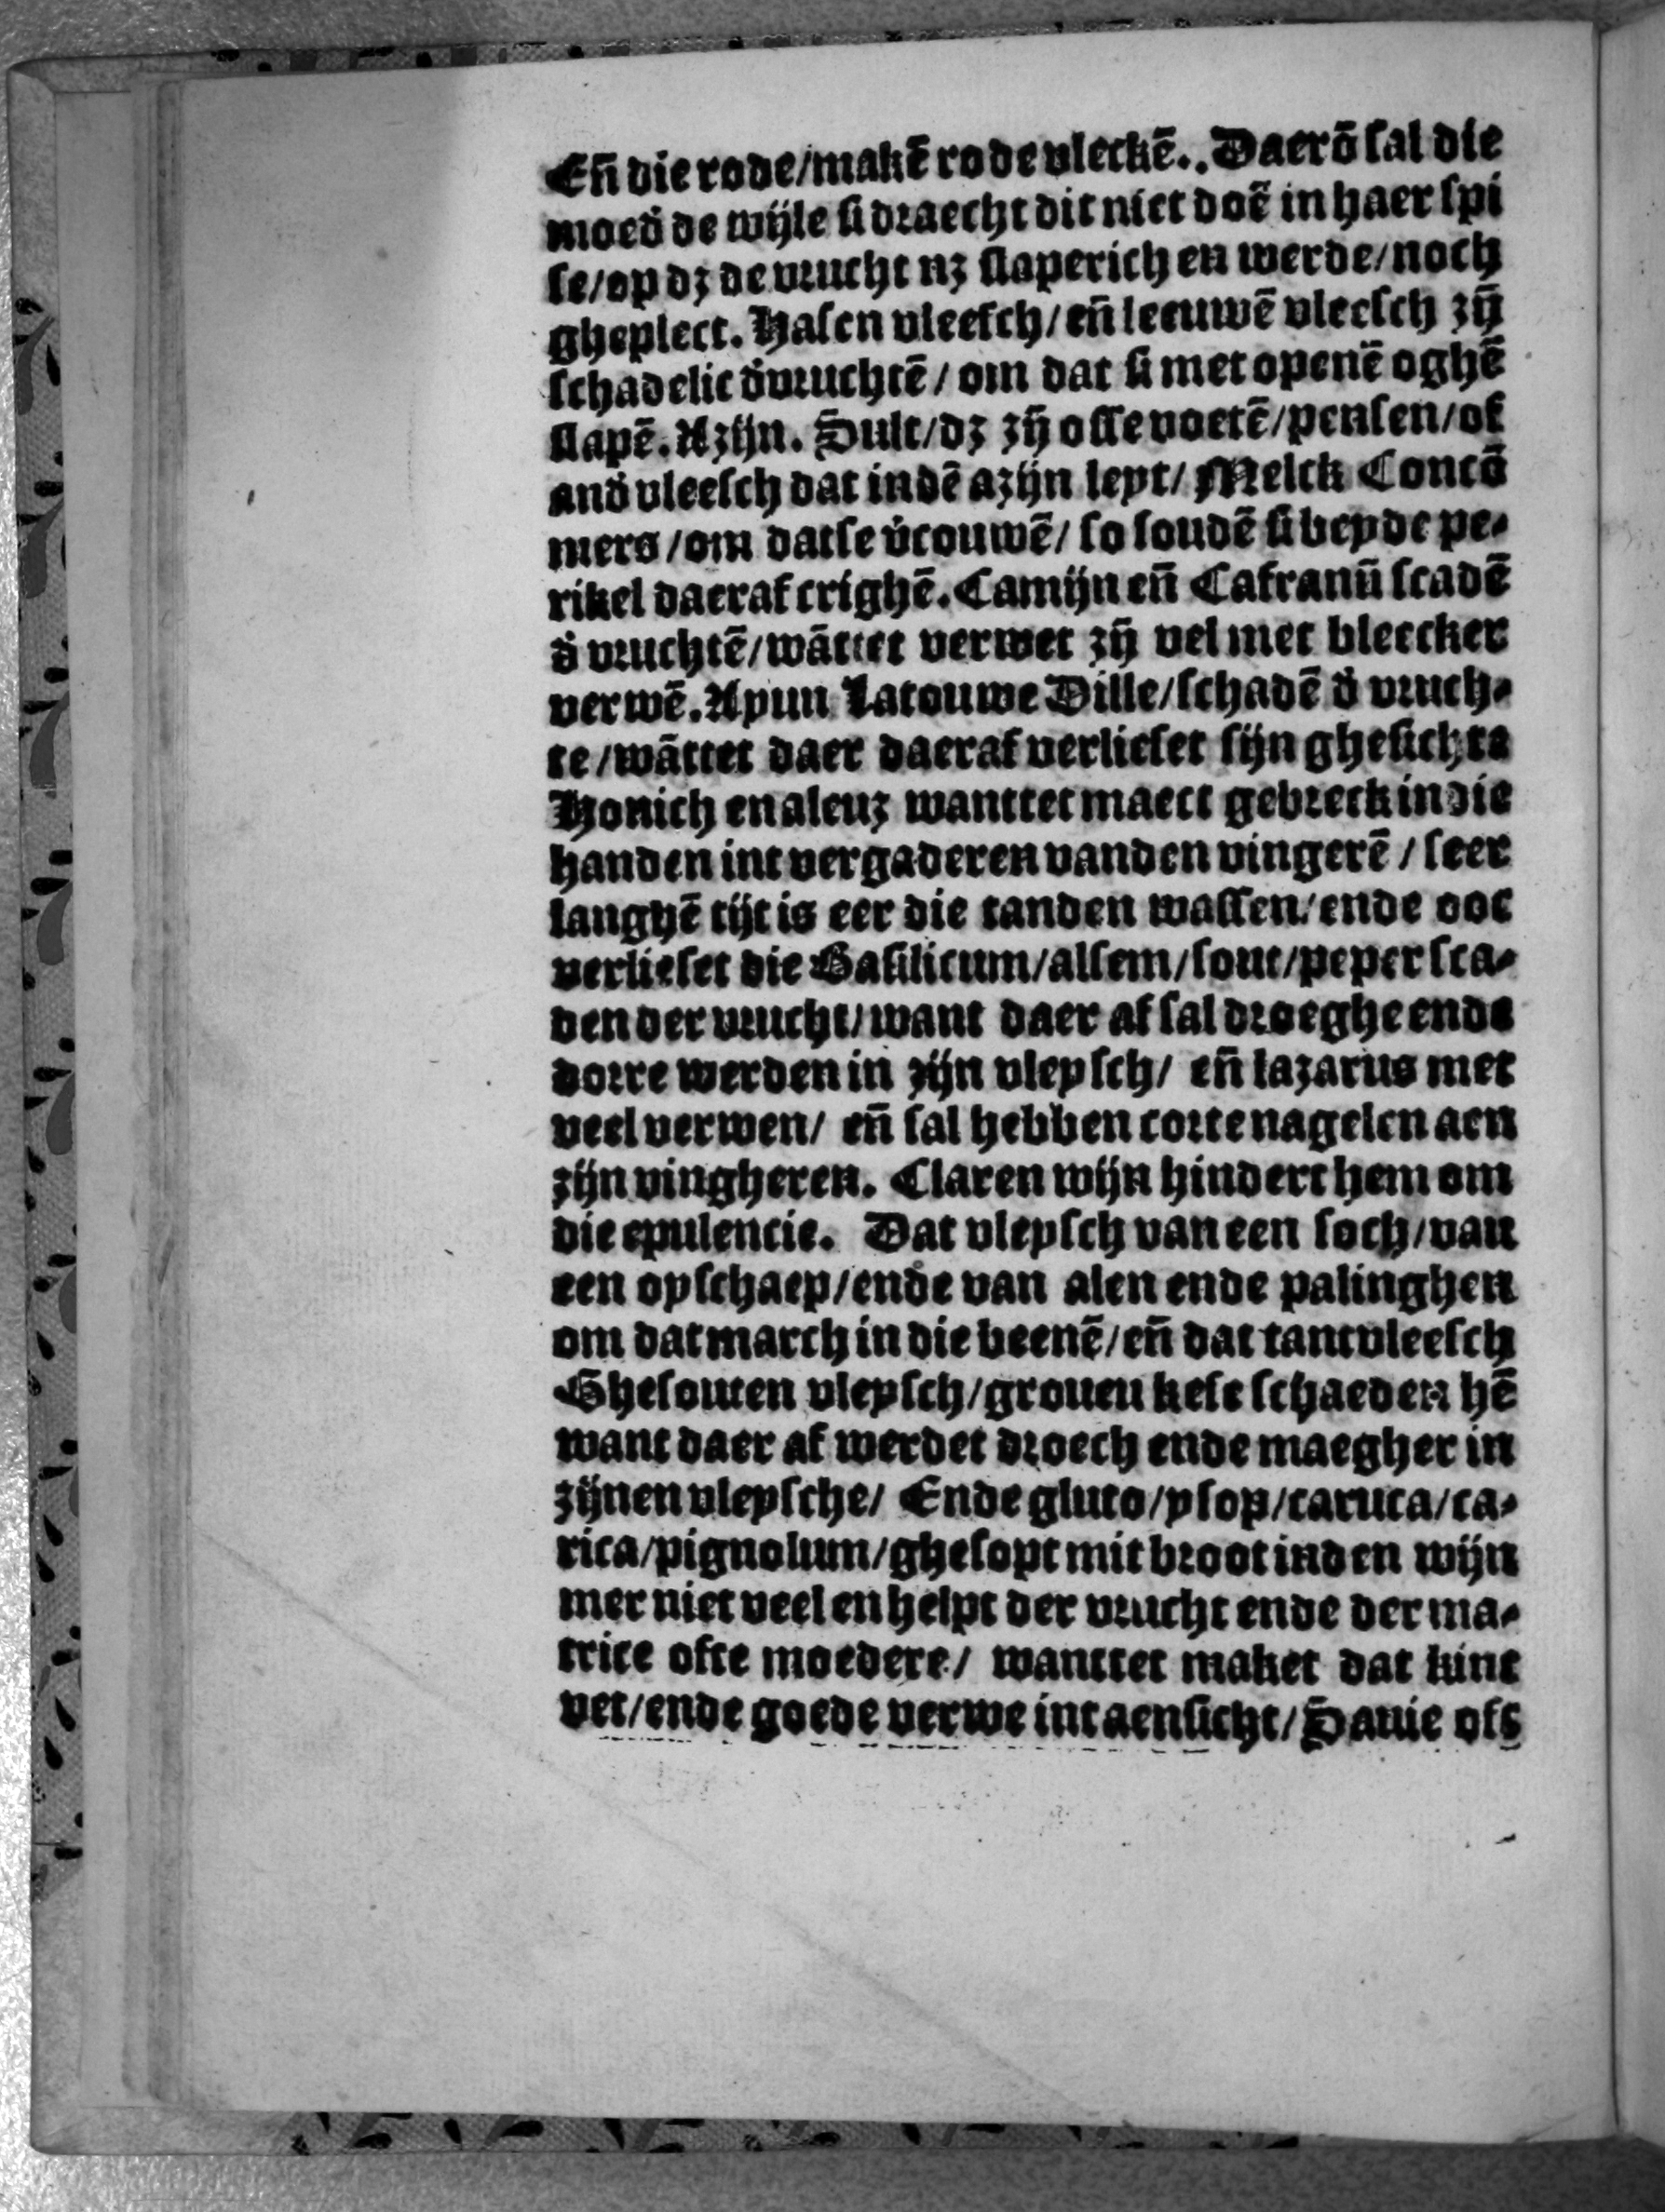 Eñ die rode/makē rode vleckē.. Daerō sal die
moed̉ de wijle si draecht dit niet doē in haer spi
se/op dz de vrucht nz slaperich en werde/noch
gheplect. Hasen vleesch/eñ leeuwē vleesch zȳ
schadelic d̉vruchtē/om dat si met openē oghē
slapē. Azijn. Sult/dz zȳ osse voetē/pensen/of
and̉ vleesch dat indē azijn leyt/Melck Concō
mers/om datse v̉couwē/so soudē si beyde pe-
rikel daeraf crighē. Camijn eñ Cafranū scadē
d̉ vruchtē/wāttet verwet zȳ vel met bleecker
verwē. Apun Latouwe Dille/schadē d̉ vruch-
te/wāttet daer daeraf verlieset sijn ghesichte
Honich en aleuz wanttet maect gebreck in die
handen int vergaderen vanden vingerē/seer
langhē tijt is eer die tanden wassen/ende ooc
verlieset die Basilicum/alsem/sout/peper sca-
den der vrucht/want daer af sal droeghe ende
dorre werden in zijn vleysch/ eñ lazarus met
veel verwen/ eñ sal hebben corte nagelen aen
zijn vingheren. Claren wijn hindert hem om
die epulencie. Dat vleysch van een soch/van
een opschaep/ende van alen ende palinghen
om dat march in die beenē/eñ dat tantvleesch
Ghesouten vleysch/grouen kese schaeden hē
want daer af werdet droech ende maegher in
zijnen vleysche/ Ende gluto/ysop/caruca/ca-
rica/pignolum/ghesopt mit broot inden wijn
mer niet veel en helpt der vrucht ende der ma-
trice ofte moedere/ wanttet maket dat kint
vet/ende goede verwe int aensicht/Sauie ofs